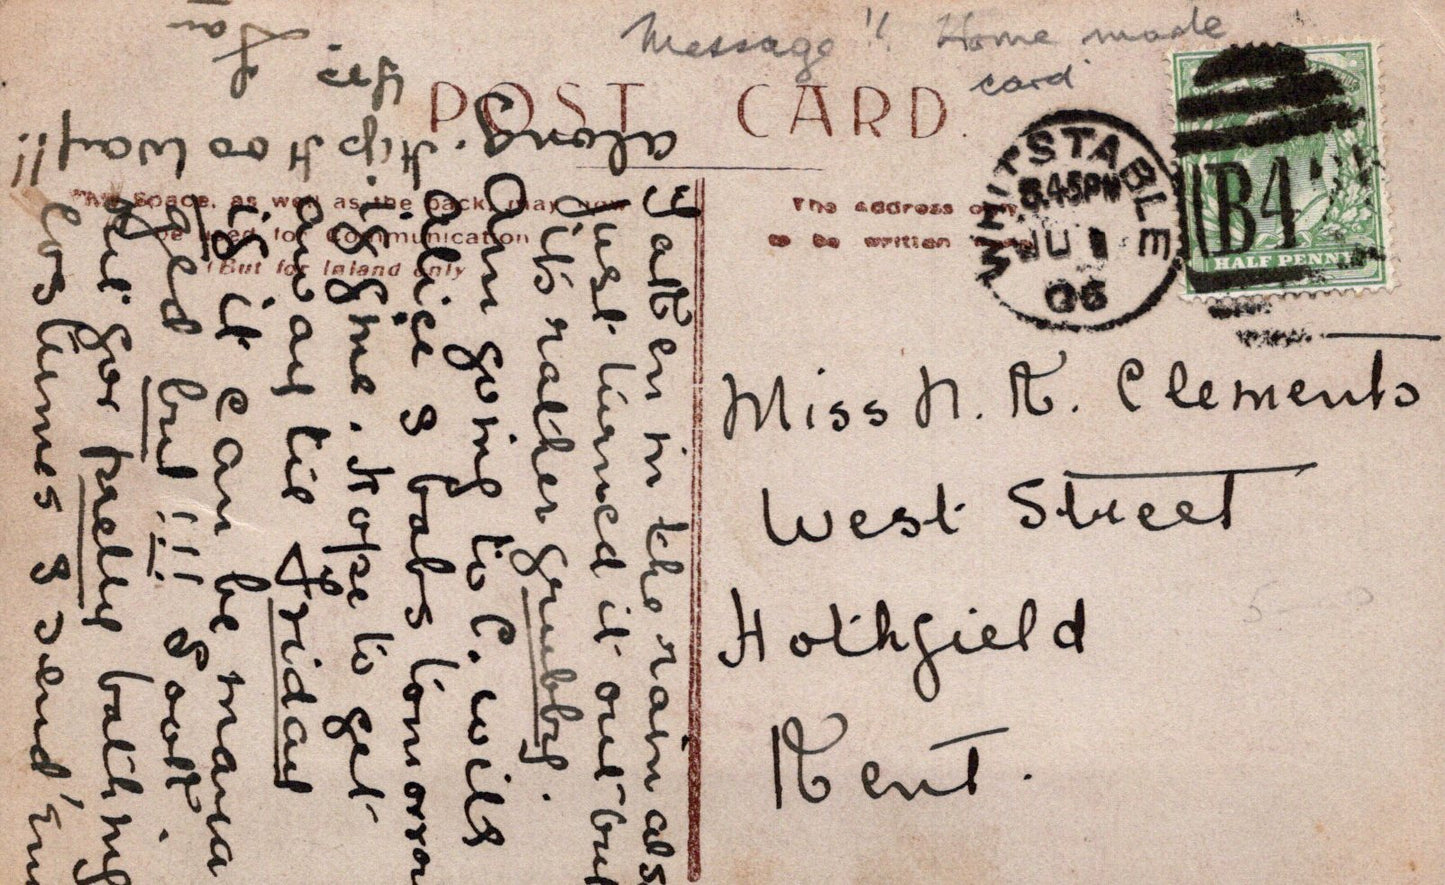 Message!! Home made
card
POST CARD.
This Space, as well as the back, may now
be used for Communication
(But for Inland only
The address only
to be written
WHITSTABLE
8.45PM
JU 1
06
B4
HALF PENNY
Miss N. K. Clements
West Street
Hothfield
Kent.
Taken in the rain also
just turned it out but
it's rather grubby.
Am going to C. with
Alice & babs tomorrow
if fine. Hope to get
away till Friday
is it can be mana
ged but!!! Don't
but for pretty bathing
costumes & send 'em
along. Hip Hoo Way!!
Yes